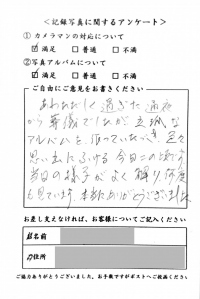 <記録写真に関するアンケート>
①カメラマンの対応について
☑満足 □普通 □不満
②写真アルバムについて
☑満足 □普通 □不満
ご自由にご意見をお書きください
あわただしく過ぎた通夜
から葬儀でしたが立派な
アルバムを、張っていただき、色々
思い出にふける今日この頃です
当日の様子がよく解り何度
も見ています。本当にありがとうございました。
お差し支えなければ、お客様についてご記入ください
お名前
ご住所
ご協力ありがとうございました。お手数ですがポストへご投函ください